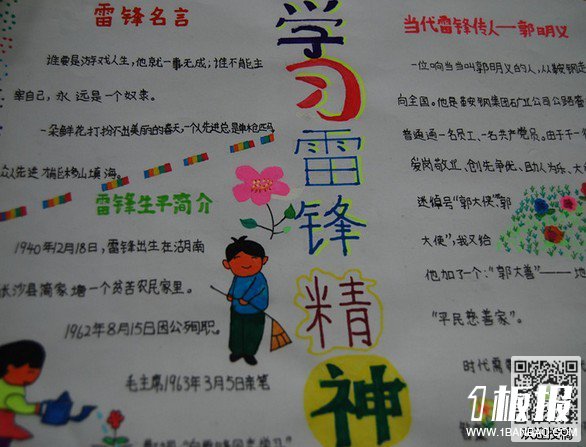 雷锋名言
谁要是游戏人生，他就一事无成；谁不能主
宰自己，永远是一个奴隶。
一朵鲜花打扮不出美丽的春天，一个人先进总是单枪匹马
众人先进才能移山填海。
雷锋生平简介
1940年12月18日，雷锋出生在湖南
长沙县简家塘一个贫苦农民家里。
1962年8月15日因公殉职。
毛主席1963年3月5日亲笔
学习雷锋精神
当代雷锋传人——郭明义
一位响当当叫郭明义的人，从鞍钢走
向全国。他是鞍钢集团矿业公司公路
普通通一名员工、一名共产党员。由于千一
爱岗敬业、创先争优、助人为乐、大
送绰号“郭大侠”。郭
大侠”，我又给
他加了个：“郭大善”——地
“平民慈善家”。
时代需
1板报
WWW.1BANBAO.COM